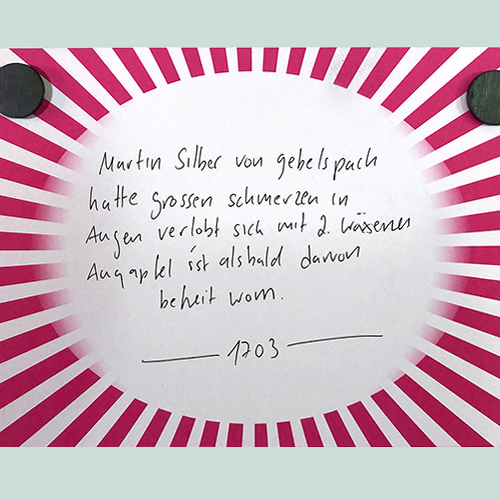 Martin Silber von gebelspach
hatte grossen schmerzen in
Augen verlobt sich mit 2. wäxenen
Augapfel ist alsbald davon
befreit worn.
1703